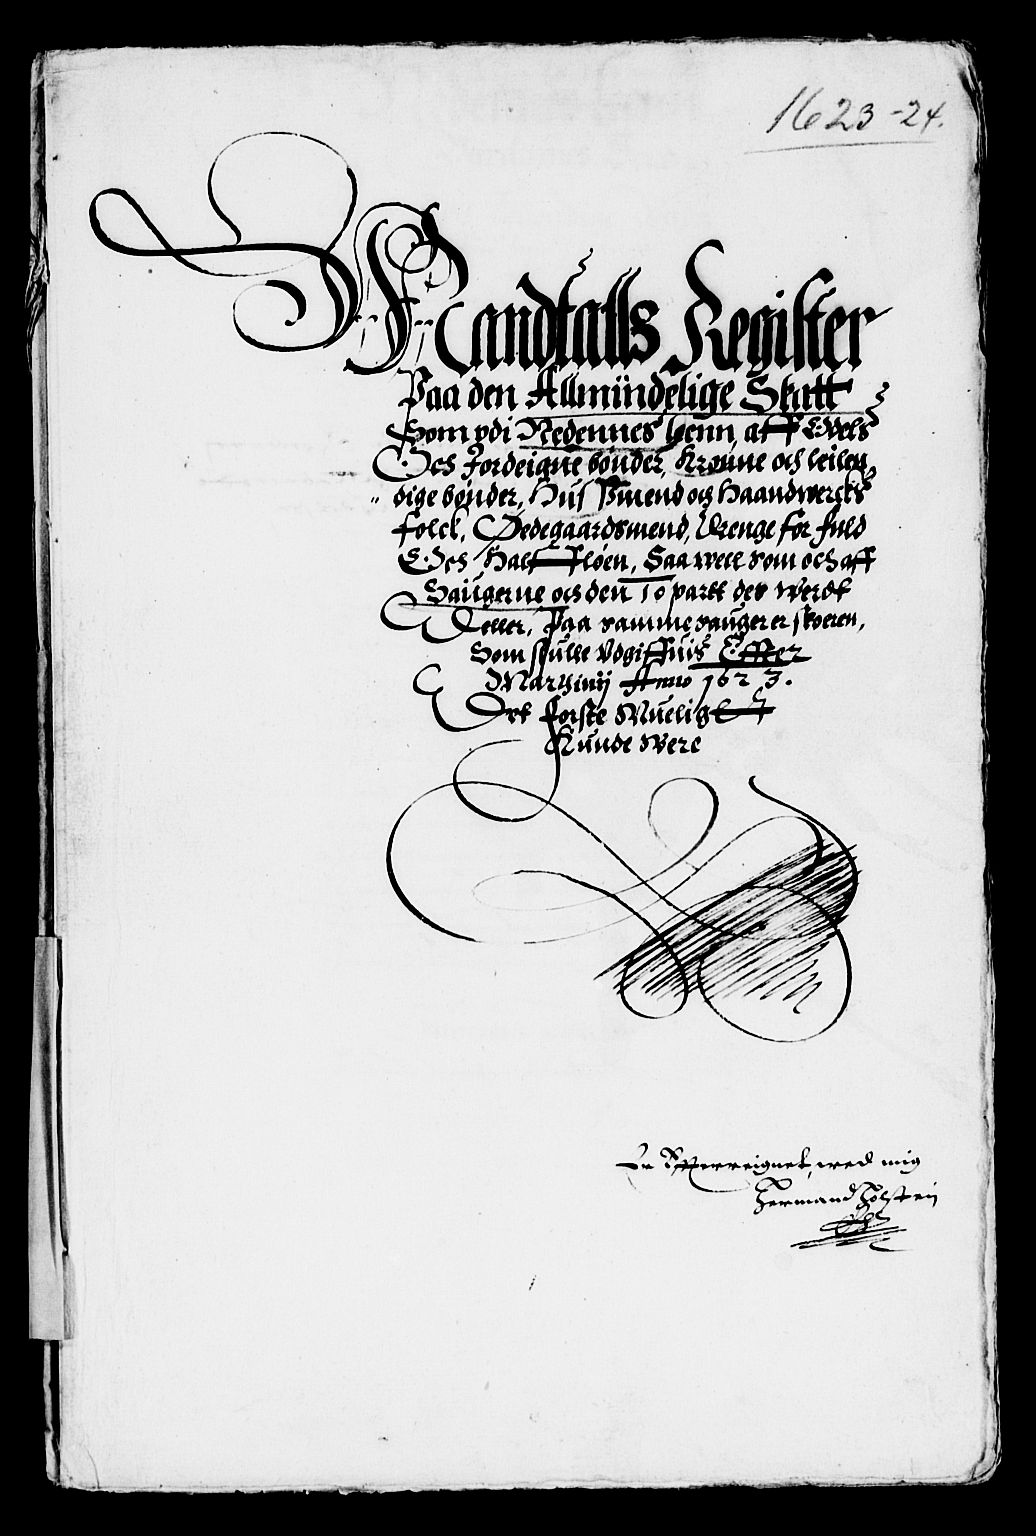 1623-24.
Mandtalls Register
Paa den Allmündelige Skatt
Som vdi Nedennes Lenn, aff Odels
Och Jordeigne bønder, Kronne och leilen,
dige bønder, Huus Mend och Haandwercks
folck, Ødegaardsmend, Drenge for fuld
Och Half Løen, Saa well som och aff
Saugerne och den 10 partt der Werdt
Deller, Paa samme sauger er skoeren,
Som skulle Vdgiffuis Effter
Martinij Anno 1623.
Det første Mueligt
Kunde Were
wed mig
Hermand Holstein